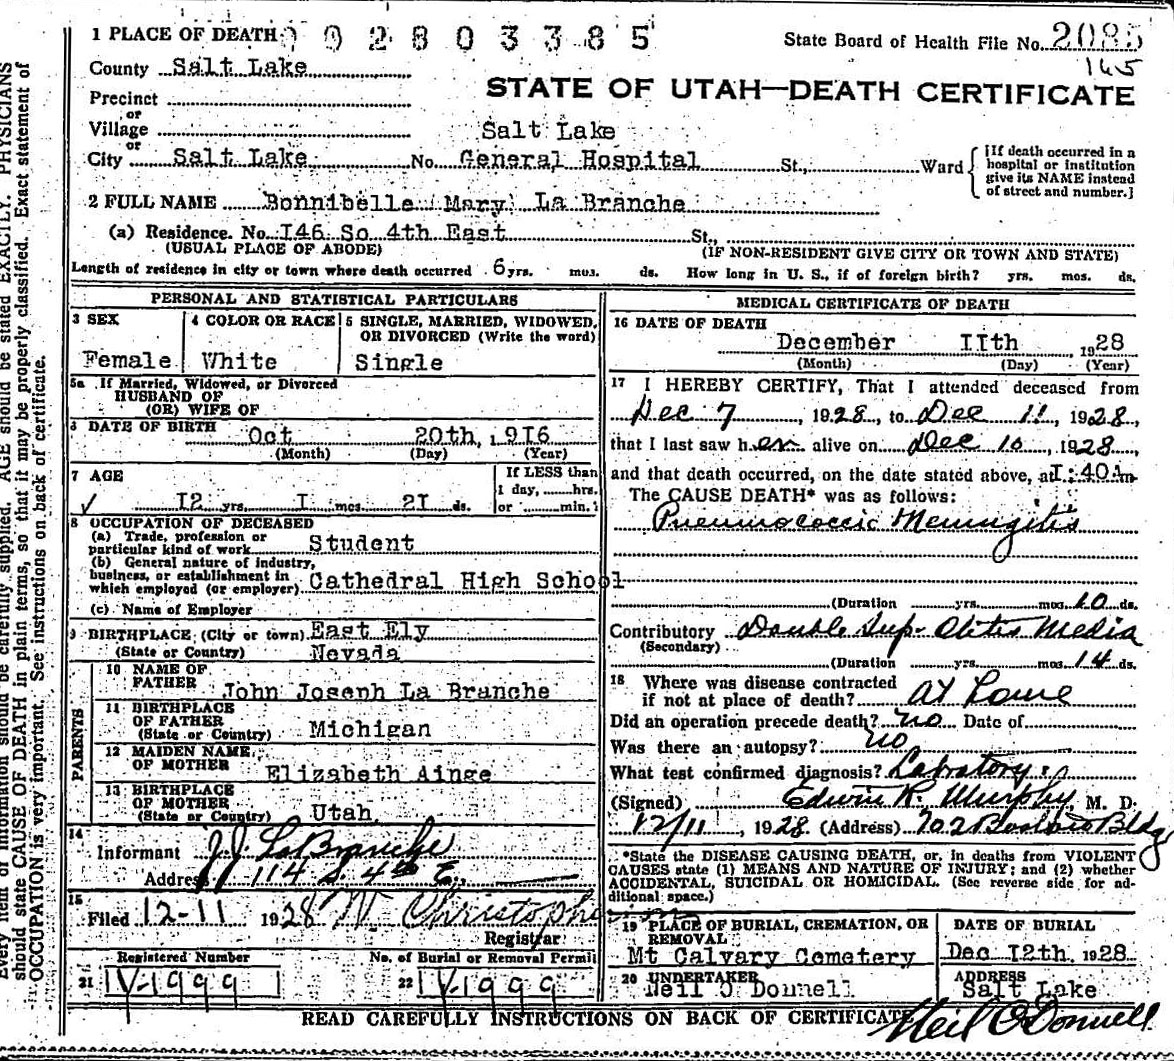 1 PLACE OF DEATH 0 0 2 8 0 3 3 8 5 State Board of Health File No. 2085
165
County Salt Lake
STATE OF UTAH—DEATH CERTIFICATE
Precinct
or
Village Salt Lake
or
City Salt Lake No. General Hospital St., Ward
[If death occurred in a
hospital or institution
give its NAME instead
of street and number.]
2 FULL NAME Bonnibelle Mary La Branche
(a) Residence. No. I46 So 4th East St.,
(USUAL PLACE OF ABODE) (IF NON-RESIDENT GIVE CITY OR TOWN AND STATE)
Length of residence in city or town where death occurred 6 yrs. mos. ds. How long in U. S., if of foreign birth? yrs. mos. ds.
PERSONAL AND STATISTICAL PARTICULARS
3 SEX 4 COLOR OR RACE 5 SINGLE, MARRIED, WIDOWED,
OR DIVORCED (Write the word)
Female White Single
5a If Married, Widowed, or Divorced
HUSBAND OF
(OR) WIFE OF
6 DATE OF BIRTH Oct 20th, 1916
(Month) (Day) (Year)
7 AGE If LESS than
1 day, hrs.
I2 yrs. I mos. 2I ds. or min.
8 OCCUPATION OF DECEASED
(a) Trade, profession or
particular kind of work Student
(b) General nature of industry,
business, or establishment in
which employed (or employer) Cathedral High School
(c) Name of Employer
9 BIRTHPLACE (City or town) East Ely
(State or Country) Nevada
PARENTS
10 NAME OF
FATHER John Joseph La Branche
11 BIRTHPLACE
OF FATHER
(State or Country) Michigan
12 MAIDEN NAME
OF MOTHER Elizabeth Ainge
13 BIRTHPLACE
OF MOTHER
(State or Country) Utah
14
Informant J.J. LaBranche
Address 114 S. 4th E.
15
Filed 12-11 1928 W Christophe
Registrar
Registered Number No. of Burial or Removal Permit
21 V-1999 22 V-1999
MEDICAL CERTIFICATE OF DEATH
16 DATE OF DEATH
December IIth 1928
(Month) (Day) (Year)
17 I HEREBY CERTIFY, That I attended deceased from
Dec 7, 1928, to Dec 11, 1928,
that I last saw her alive on Dec 10, 1928,
and that death occurred, on the date stated above, at I:40 A m
The CAUSE DEATH* was as follows:
Pneumococcic Meningitis
(Duration yrs. mos. 10 ds.
Contributory Double Sup. Otitis Media
(Secondary)
(Duration yrs. mos. 14 ds.
18 Where was disease contracted
if not at place of death? at home
Did an operation precede death? no Date of
Was there an autopsy? no
What test confirmed diagnosis? Labratory
(Signed) Edwin R. Murphy, M. D.
12/11, 1928 (Address) 702 Boston Bldg
*State the DISEASE CAUSING DEATH, or, in deaths from VIOLENT
CAUSES state (1) MEANS AND NATURE OF INJURY; and (2) whether
ACCIDENTAL, SUICIDAL OR HOMICIDAL. (See reverse side for ad-
ditional space.)
19 PLACE OF BURIAL, CREMATION, OR
REMOVAL
Mt Calvary Cemetery
DATE OF BURIAL
Dec 12th, 1928
20 UNDERTAKER
Neil O Donnell
ADDRESS
Salt Lake
Neil O'Donnell
READ CAREFULLY INSTRUCTIONS ON BACK OF CERTIFICATE
Every item of information should be carefully supplied. AGE should be stated EXACTLY. PHYSICIANS
should state CAUSE OF DEATH in plain terms, so that it may be properly classified. Exact statement of
OCCUPATION is very important. See instructions on back of certificate.